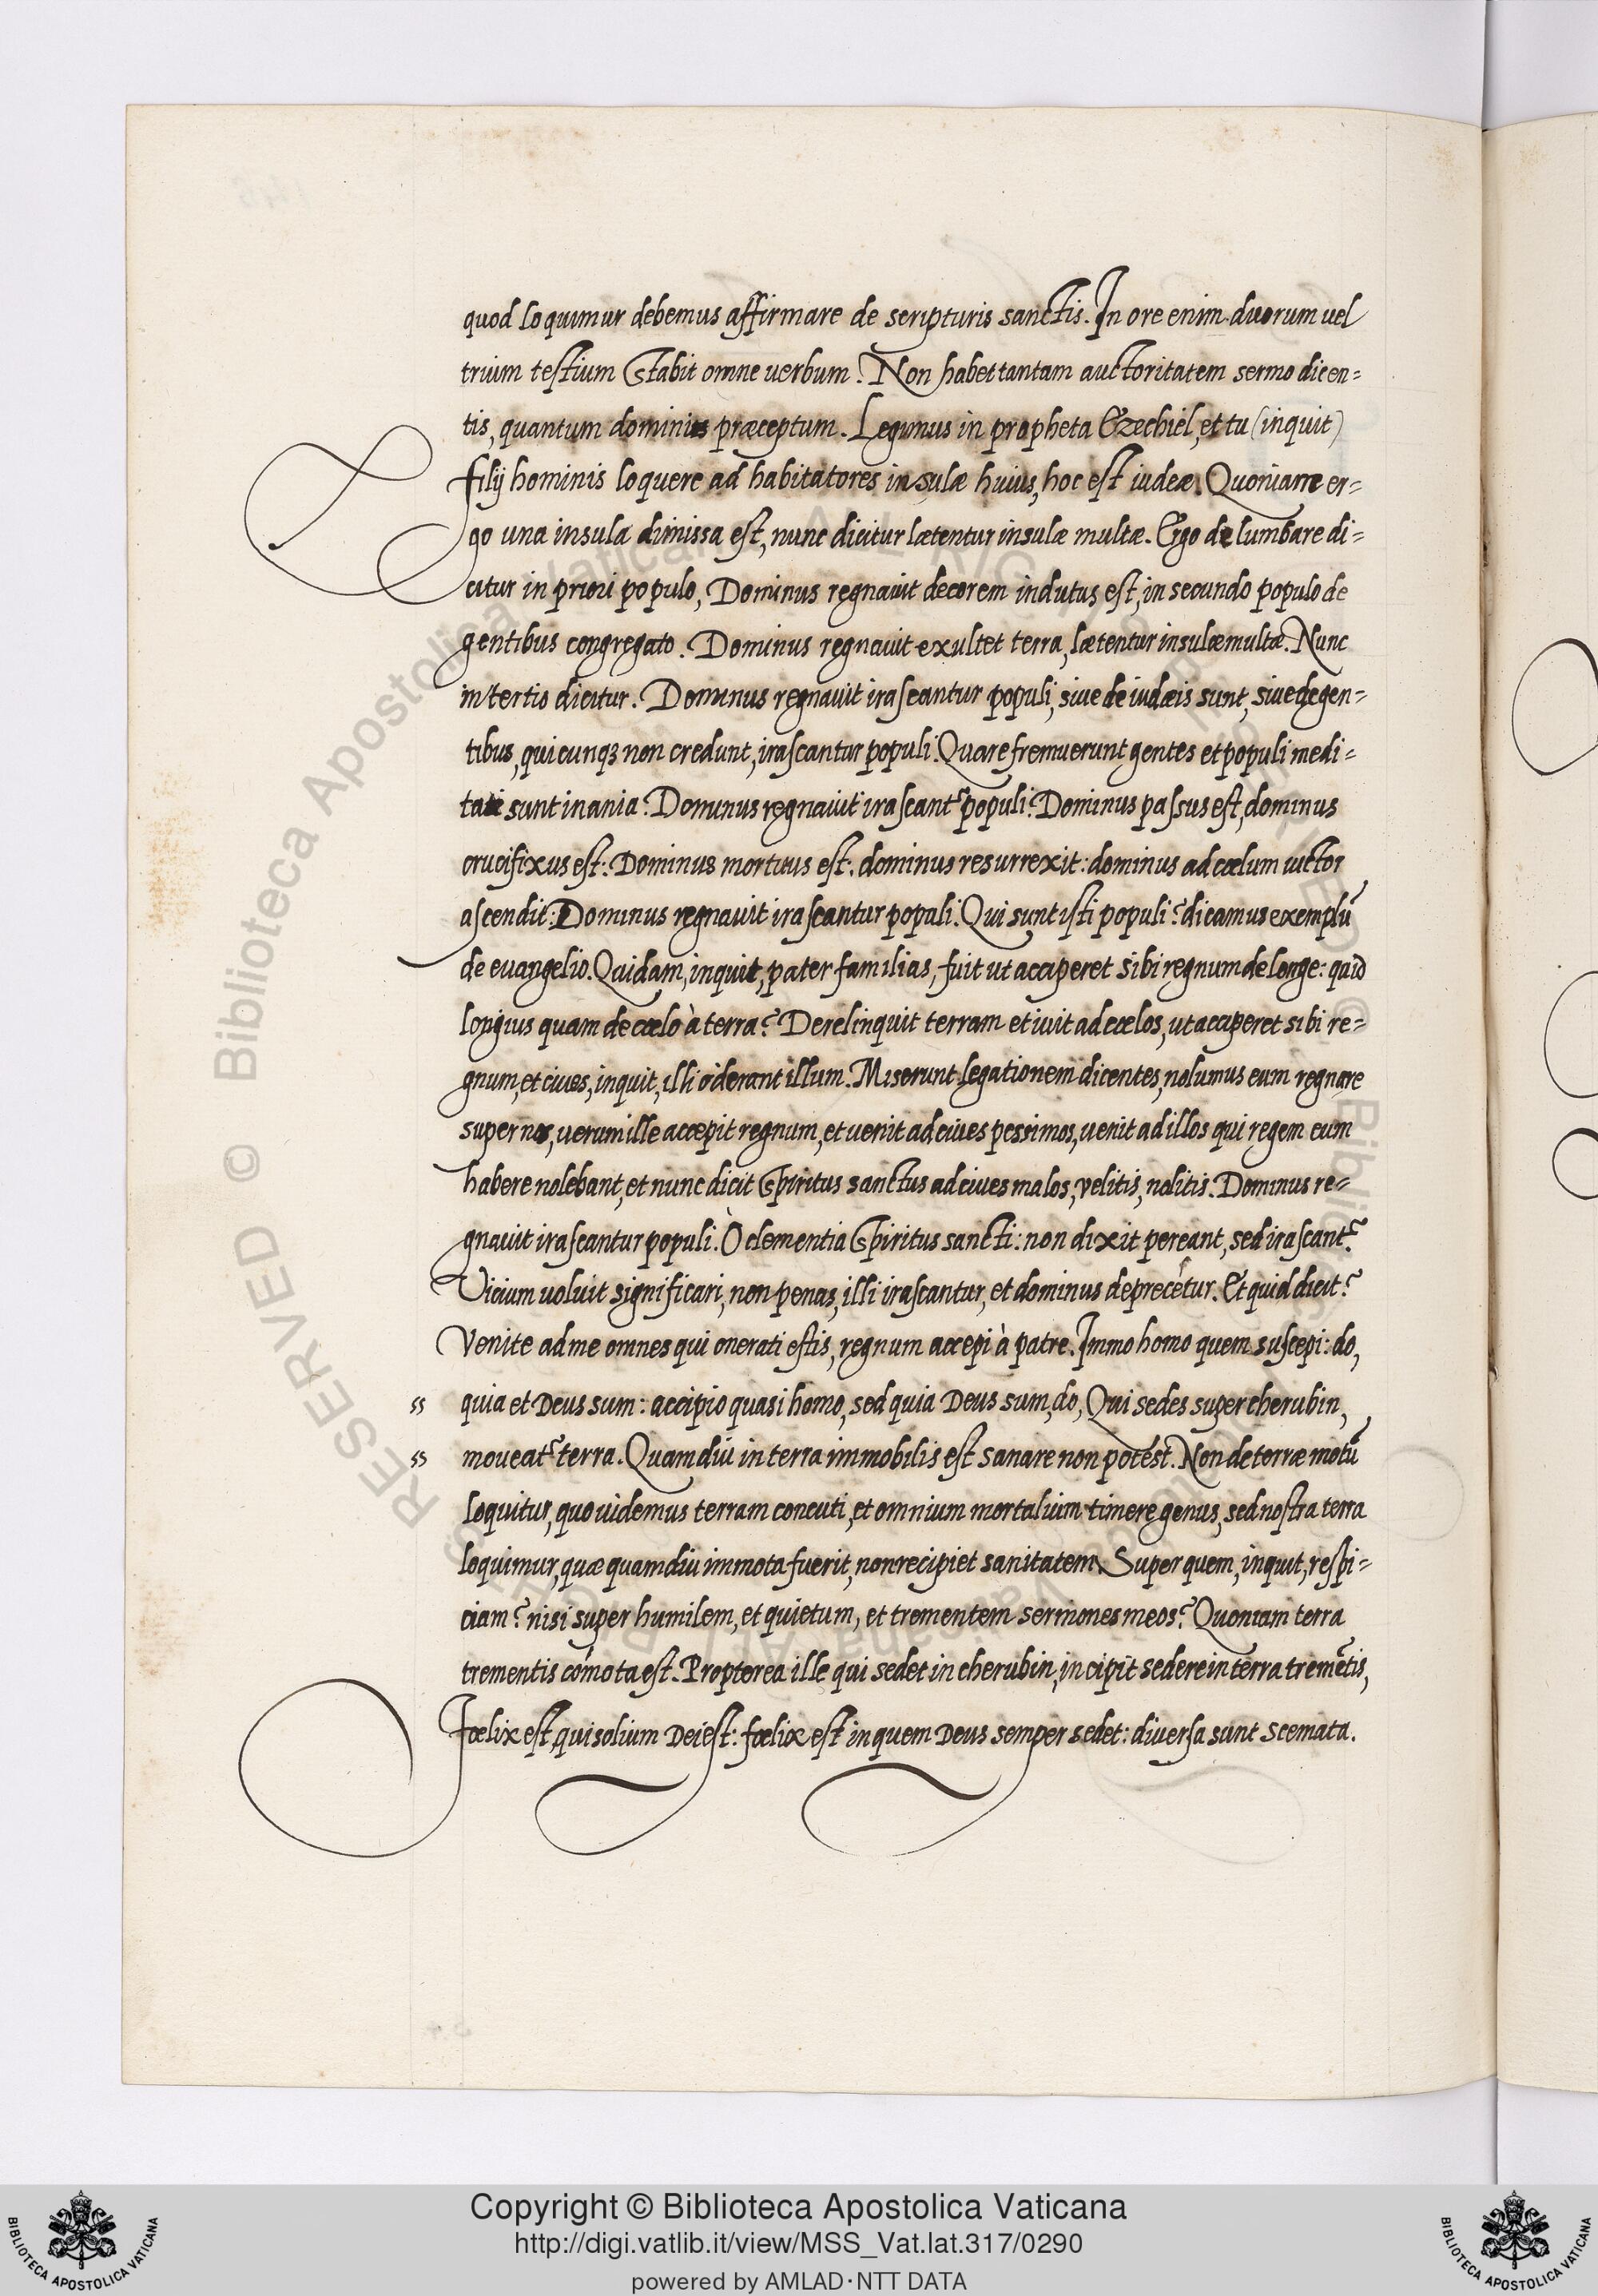 quod loquimur debemus affirmare de scripturis sanctis. In ore enim duorum uel
trium testium stabit omne uerbum. Non habet tantam auctoritatem sermo dicen=
tis, quantum dominis præceptum. Legimus in propheta Ezechiel, et tu (inquit)
filij hominis loquere ad habitatores insulæ huius, hoc est iudeæ. Quoniam er=
go una insula dimissa est, nunc dicitur lætentur insulæ multæ. Ergo de lumbare di=
citur in priori populo, Dominus regnauit decorem indutus est, in secundo populo de
gentibus congregato. Dominus regnauit exultet terra, lætentur insulæ multæ. Nunc
in tertio dicitur. Dominus regnauit irascantur populi, siue de iudæis sunt, siue de gen=
tibus, quicunqꝫ non credunt, irascantur populi. Quare fremuerunt gentes et populi medi=
tati sunt inania? Dominus regnauit irascantᷣ populi? Dominus passus est, dominus
crucifixus est: Dominus mortuus est: dominus resurrexit: dominus ad cælum uictor
ascendit: Dominus regnauit irascantur populi. Qui sunt isti populi? dicamus exemplū
de euangelio. Quidam, inquit, pater familias, fuit ut acciperet sibi regnum de longe: quid
longius quam de cœlo à terra? Derelinquit terram et iuit ad cælos, ut acciperet sibi re=
gnum, et ciues, inquit, illi oderant illum. Miserunt legationem dicentes, nolumus eum regnare
super nos, uerum ille accepit regnum, et uenit ad ciues pessimos, uenit ad illos qui regem eum
habere nolebant, et nunc dicit spiritus sanctus ad ciues malos, velitis, nolitis. Dominus re=
gnauit irascantur populi. Ò clementia spiritus sancti: non dixit pereant, sed irascantᷣ.
Vicium uoluit significari, non penas, illi irascantur, et dominus deprecētur. Et quid dicit?
Venite ad me omnes qui onerati estis, regnum accepi à patre. Immo homo quem suscepi: do,
ss quia et Deus sum: accipio quasi homo, sed quia Deus sum, do, Qui sedes super cherubin,
ss moueatᷣ terra. Quamdiu in terra immobilis est sanare non potest. Non de terræ motū
loquitur, quo uidemus terram concuti, et omnium mortalium timere genus, sed nostra terra
loquimur, quæ quamdiu immota fuerit, non recipiet sanitatem. Super quem, inquit, respi=
ciam? nisi super humilem, et quietum, et trementem sermones meos? Quoniam terra
trementis cōmota est. Propterea ille qui sedet in cherubin, incipit sedere in terra tremētis,
Fœlix est, qui solium Dei est: fœlix est in quem Deus semper sedet: diuersa sunt scemata.
Copyright © Biblioteca Apostolica Vaticana
http://digi.vatlib.it/view/MSS_Vat.lat.317/0290
powered by AMLAD·NTT DATA